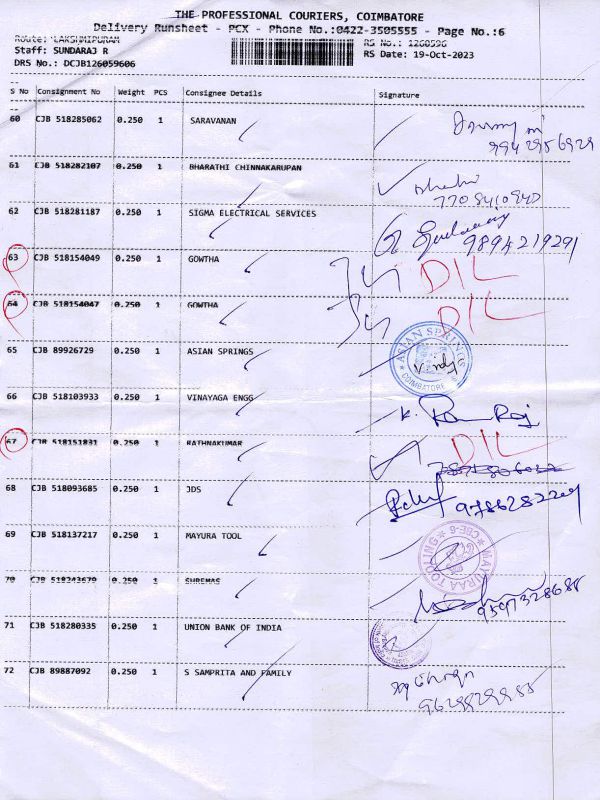 THE PROFESSIONAL COURIERS, COIMBATORE
Delivery Runsheet - PCX - Phone No.:0422-3505555 - Page No.:6
Route: LAKSHMIPURAM RS No.: 1260596
Staff: SUNDARAJ R RS Date: 19-Oct-2023
DRS No.: DCJB126059606
S No Consignment No Weight PCS Consignee Details Signature
60 CJB 518285062 0.250 1 SARAVANAN
61 CJB 518282107 0.250 1 BHARATHI CHINNAKARUPAN
62 CJB 518281187 0.250 1 SIGMA ELECTRICAL SERVICES
9894219291
63 CJB 518154049 0.250 1 GOWTHA DIL
64 CJB 518154047 0.250 1 GOWTHA DIL
65 CJB 89926729 0.250 1 ASIAN SPRINGS ASIAN SPRINGS COIMBATORE
66 CJB 518103933 0.250 1 VINAYAGA ENGG
67 CJB 518151831 0.250 1 RATHNAKUMAR DIL
68 CJB 518093685 0.250 1 JDS
69 CJB 518137217 0.250 1 MAYURA TOOL MAYURA TOOLING CBE-6
70 CJB 518243679 0.250 1 SUREMAS
71 CJB 518280335 0.250 1 UNION BANK OF INDIA
72 CJB 89887092 0.250 1 S SAMPRITA AND FAMILY